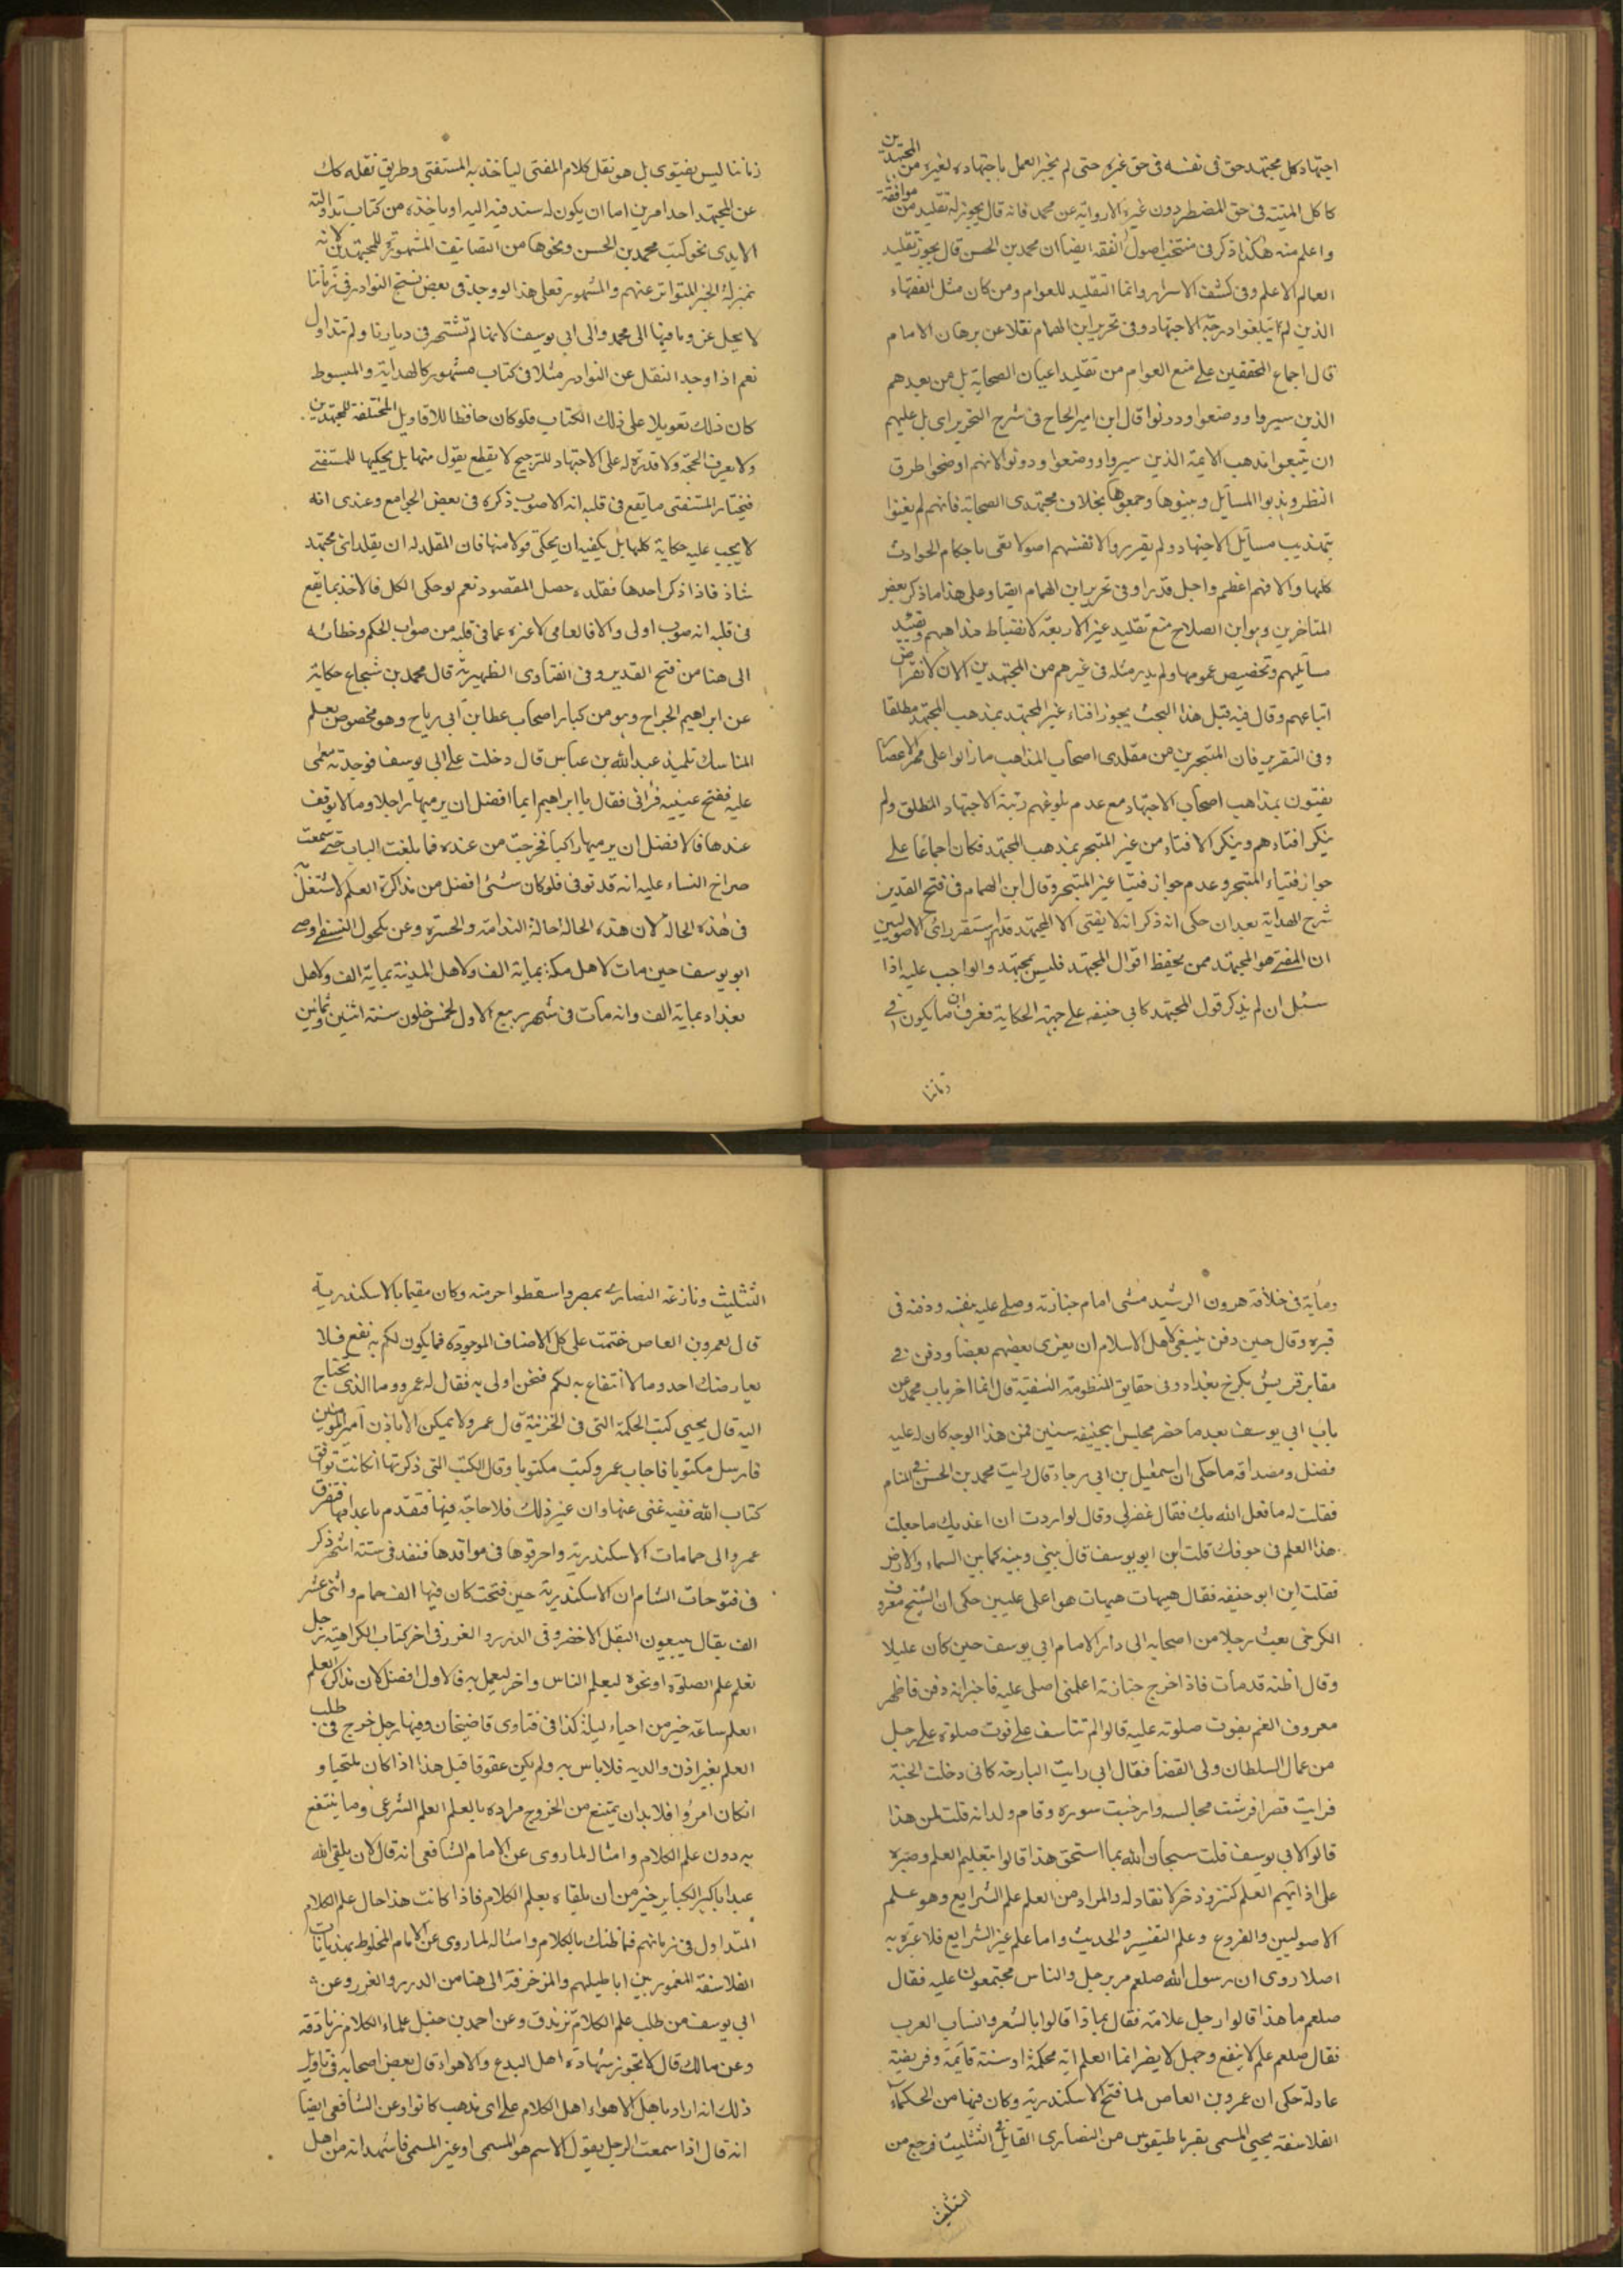 اجتهاد كل مجتهد حق فى نفسه فى حق غيره حتى لم يجز العمل باجتهاده لغيره من المجتهدين
كاكل الميتة فى حق المضطر دون غيره الا رواية عن محمد فانه قال يجوز له تقليد من موافقة
واعلم منه هكذا ذكر فى منتخب اصول الفقه ايضا ان محمد بن الحسن قال يجوز تقليد
العالم الاعلم وفى كشف الاسرار وانما التقليد للعوام ومن كان مثل الفقهاء
الذين لم يبلغوا درجة الاجتهاد وفى تحرير ابن الهمام نقلا عن برهان الامام
قال اجماع المحققين على منع العوام من تقليد اعيان الصحابة بل من بعدهم
الذين سبروا ووضعوا ودونوا قال ابن امير الحاج فى شرح التحرير اى بل عليهم
ان يتبعوا مذهب الايمة الذين سبروا ووضعوا ودونوا لانهم اوضحوا طرق
النظر وهذبوا المسايل وبينوها وجمعوها بخلاف مجتهدى الصحابة فانهم لم يعينوا
بتهذيب مسايل الاجتهاد ولم يقرروا لانفسهم اصولا تفى باحكام الحوادث
كلها والا فهم اعظم واجل قدرا وفى تحرير ابن الهمام ايضا وعلى هذا ما ذكر بعض
المتاخرين وهو ابن الصلاح منع تقليد غير الاربعة لانضباط مذاهبهم وتقييد
مسايلهم وتخصيص عمومها ولم يدر مثله فى غيرهم من المجتهدين الان لانقراض
اتباعهم وقال فيه قبل هذا البحث يجوز افتاء غير المجتهد بمذهب المجتهد مطلقا
وفى التقرير فان المتبحرين من مقلدى اصحاب المذاهب مازالوا على ممر الاعصار
يفتون بمذاهب اصحاب الاجتهاد مع عدم بلوغهم رتبة الاجتهاد المطلق ولم
ينكر افتاءهم وينكر الافتاء من غير المتبحر بمذهب المجتهد فكان اجماعا على
جواز فتياء المتبحر وعدم جواز فتيا غير المتبحر وقال ابن الهمام فى فتح القدير
شرح الهداية بعد ان حكى انه ذكر انه لا يفتى الا المجتهد قد استقر راى الاصوليين
ان المفتى هو المجتهد ممن يحفظ اقوال المجتهد فليس بمجتهد والواجب عليه اذا
سئل ان لم يذكر قول المجتهد كابى حنيفه على جهة الحكاية فعرف ان ما يكون فى
زماننا
زماننا ليس بفتوى بل هو نقل كلام المفتى لياخذ به المستفتى وطريق نقله كك
عن المجتهد احد امرين اما ان يكون له سند فيه اليه او ياخذه من كتاب تداولته
الايدى نحو كتب محمد بن الحسن ونحوها من التصانيف المشهورة للمجتهدين لانه
بمنزلة الخبر المتواتر عنهم والمشهور فعلى هذا لو وجد فى بعض نسخ النوادر فى زماننا
لا يحل عزو ما فيها الى محمد والى ابى يوسف لانها لم تشتهر فى ديارنا ولم تتداول
نعم اذا وجد النقل عن النوادر مثلا فى كتاب مشهور كالهداية والمبسوط
كان ذلك تعويلا على ذلك الكتاب فلو كان حافظا للاقاويل المختلفة للمجتهدين
ولا يعرف الحجة ولا قدرة له على الاجتهاد للترجيح لا يقطع بقول منها بل يحكيها للمستفتى
فيختار المستفتى ما يقع فى قلبه انه الاصوب ذكره فى بعض الجوامع وعندى انه
لا يجب عليه حكاية كلها بل يكفيه ان يحكى قولا منها فان المقلد له ان يقلد اى مجتهد
شاذ فاذا ذكر احدها فقلده حصل المقصود نعم لو حكى الكل فالاخذ بما يقع
فى قلبه انه صوب اولى والا فالعامى لا عبرة عما فى قلبه من صواب الحكم وخطائه
الى هنا من فتح القدير وفى الفتاوى الظهيرية قال محمد بن شجاع حكاية
عن ابراهيم الجراح وهو من كبار اصحاب عطا بن ابى رباح وهو مخصوص بعلم
المناسك تلميذ عبد الله بن عباس قال دخلت على ابى يوسف فوجدته مغمى
عليه ففتح عينيه فرأنى فقال يا ابراهيم ايما افضل ان يرميها راجلا وما لا يوقف
عندها فالافضل ان يرميها راكبا فخرجت من عنده فما بلغت الباب حتى سمعت
صراخ النساء عليه انه قد توفى فلو كان شئ افضل من مذاكرة العلم لاشتغل به
فى هذه الحالة لان هذه الحالة حالة الندامة والحسرة وعن مكحول النسفى اوصى
ابو يوسف حين مات لاهل مكة بماية الف ولاهل المدينة بماية الف ولاهل
بغداد بماية الف وانه مات فى شهر ربيع الاول لخمس خلون سنة اثنين وثمانين
وماية فى خلافة هرون الرشيد مشى امام جنازته وصلى عليه بنفسه ودفنه فى
قبره وقال حين دفن ينبغى لاهل الاسلام ان يعزى بعضهم بعضا ودفن فى
مقابر قريش بكرخ بغداد وفى حقايق المنظومة النسفية قال انما اخر باب محمد عن
باب ابى يوسف بعد ما حضر مجلس ابيحنيفه سنين فمن هذا الوجه كان له عليه
فضل ومصداقه ما حكى ان اسمعيل بن ابى رجاء قال رايت محمد بن الحسن فى المنام
فقلت له ما فعل الله بك فقال غفر لى وقال لو اردت ان اعذبك ما جعلت
هذا العلم فى جوفك قلت اين ابو يوسف قال بينى وبينه كما بين السماء والارض
فقلت اين ابو حنيفه فقال هيهات هيهات هو اعلى عليين حكى ان الشيخ معروف
الكرخى بعث رجلا من اصحابه الى دار الامام ابى يوسف حين كان عليلا
وقال اظنه قد مات فاذا خرج جنازته اعلمنى اصلى عليه فاخبر انه دفن فاظهر
معروف الغم بفوت صلوته عليه قالوا لم تتاسف على فوت صلوة على رجل
من عمال السلطان ولى القضا فقال انى رايت البارحة كانى دخلت الجنة
فرايت قصرا فرشت مجالسه وارخيت سوره وقام ولدانه قلت لمن هذا
قالوا لابى يوسف قلت سبحان الله بما استحق هذا قالوا بتعليم العلم وصبره
على اذائهم العلم كنز وذخر لا نفاد له والمراد من العلم علم الشرايع وهو علم
الاصوليين والفروع وعلم التفسير والحديث واما علم غير الشرايع فلا عبرة به
اصلا روى ان رسول الله صلعم مر برجل والناس مجتمعون عليه فقال
صلعم ما هذا قالوا رجل علامة فقال بماذا قالوا بالشعر وانساب العرب
فقال صلعم علم لا ينفع وجهل لا يضر انما العلم اية محكمة او سنة قايمة وفريضة
عادلة حكى ان عمرو بن العاص لما فتح الاسكندرية وكان فيها من الحكماء
الفلاسفة يحيى المسمى بقرباطيقوس من النصارى القايل التثليث فرجع من
التثليث
التثليث ونازعه النصارى بمصر واسقطوا حرمته وكان مقيما بالاسكندرية
قال لعمرو بن العاص ختمت على كل الاصناف الموجودة فما يكون لكم به نفع فلا
يعارضك احد وما لا انتفاع به لكم فنحن اولى به فقال له عمرو وما الذى تحتاج
اليه قال يحيى كتب الحكمة التى فى الخزينة قال عمرو لا يمكن الا باذن امير المؤمنين
فارسل مكتوبا فاجاب عمر وكتب مكتوبا وقال الكتب التى ذكرتها ان كانت توافق
كتاب الله ففيه غنى عنها وان غير ذلك فلا حاجة فيها فتقدم باعدامها ففرق
عمرو الى حمامات الاسكندرية واحرقوها فى مواقدها فنفد فى ستة اشهر ذكر
فى فتوحات الشام ان الاسكندرية حين فتحت كان فيها الف حمام واثنى عشر
الف بقال يبيعون البقل الاخضر وفى الدرر والغرر فى اخر كتاب الكراهية رجل
تعلم علم الصلوة او نحوه ليعلم الناس واخر ليعمل به فالاول افضل لان مذاكرة العلم
العلم ساعة خير من احياء ليلة كذا فى فتاوى قاضيخان وفيها رجل خرج فى طلب
العلم بغير اذن والديه فلا باس به ولم يكن عقوقا قيل هذا اذا كان ملتحيا و
انكان امردا فلا بد ان يمتنع من الخروج مراده بالعلم العلم الشرعى وما ينتفع
به دون علم الكلام وامثاله لما روى عن الامام الشافعى انه قال لان يلقى الله
عبدا باكبر الكباير خير من ان يلقاه بعلم الكلام فاذا كانت هذا حال علم الكلام
المتداول فى زمانهم فما ظنك بالكلام وامثاله لما روى عن الامام المخلوط بهذيانات
الفلاسفة المغمور بين اباطيلهم والمزخرفة الى هنا من الدرر والغرر وعن
ابى يوسف من طلب علم الكلام تزندق وعن احمد بن حنبل علماء الكلام زنادقه
وعن مالك قال لا تجوز شهادة اهل البدع والاهواء قال بعض اصحابه فى تاويل
ذلك انه اراد باهل الاهواء اهل الكلام على اى مذهب كانوا وعن الشافعى ايضا
انه قال اذا سمعت الرجل يقول الاسم هو المسمى او غير المسمى فاشهد انه من اهل